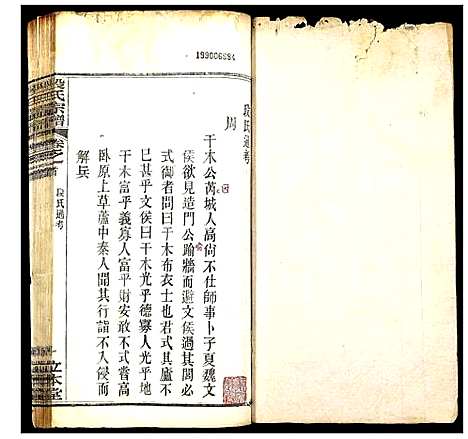 199006994
段氏通考
周
干木公芮城人高尚不仕師事卜子夏魏文
侯欲見造門公踰牆而避文侯過其閭必
式御者問曰干木布衣士也君式其廬不
已甚乎文侯曰干木光乎德寡人光乎地
干木富乎義寡人富乎財安敢不式嘗高
臥原上草蘆中秦人聞其行詣不入侵而
解兵
段氏宗譜
卷之首
段氏通考
立本堂